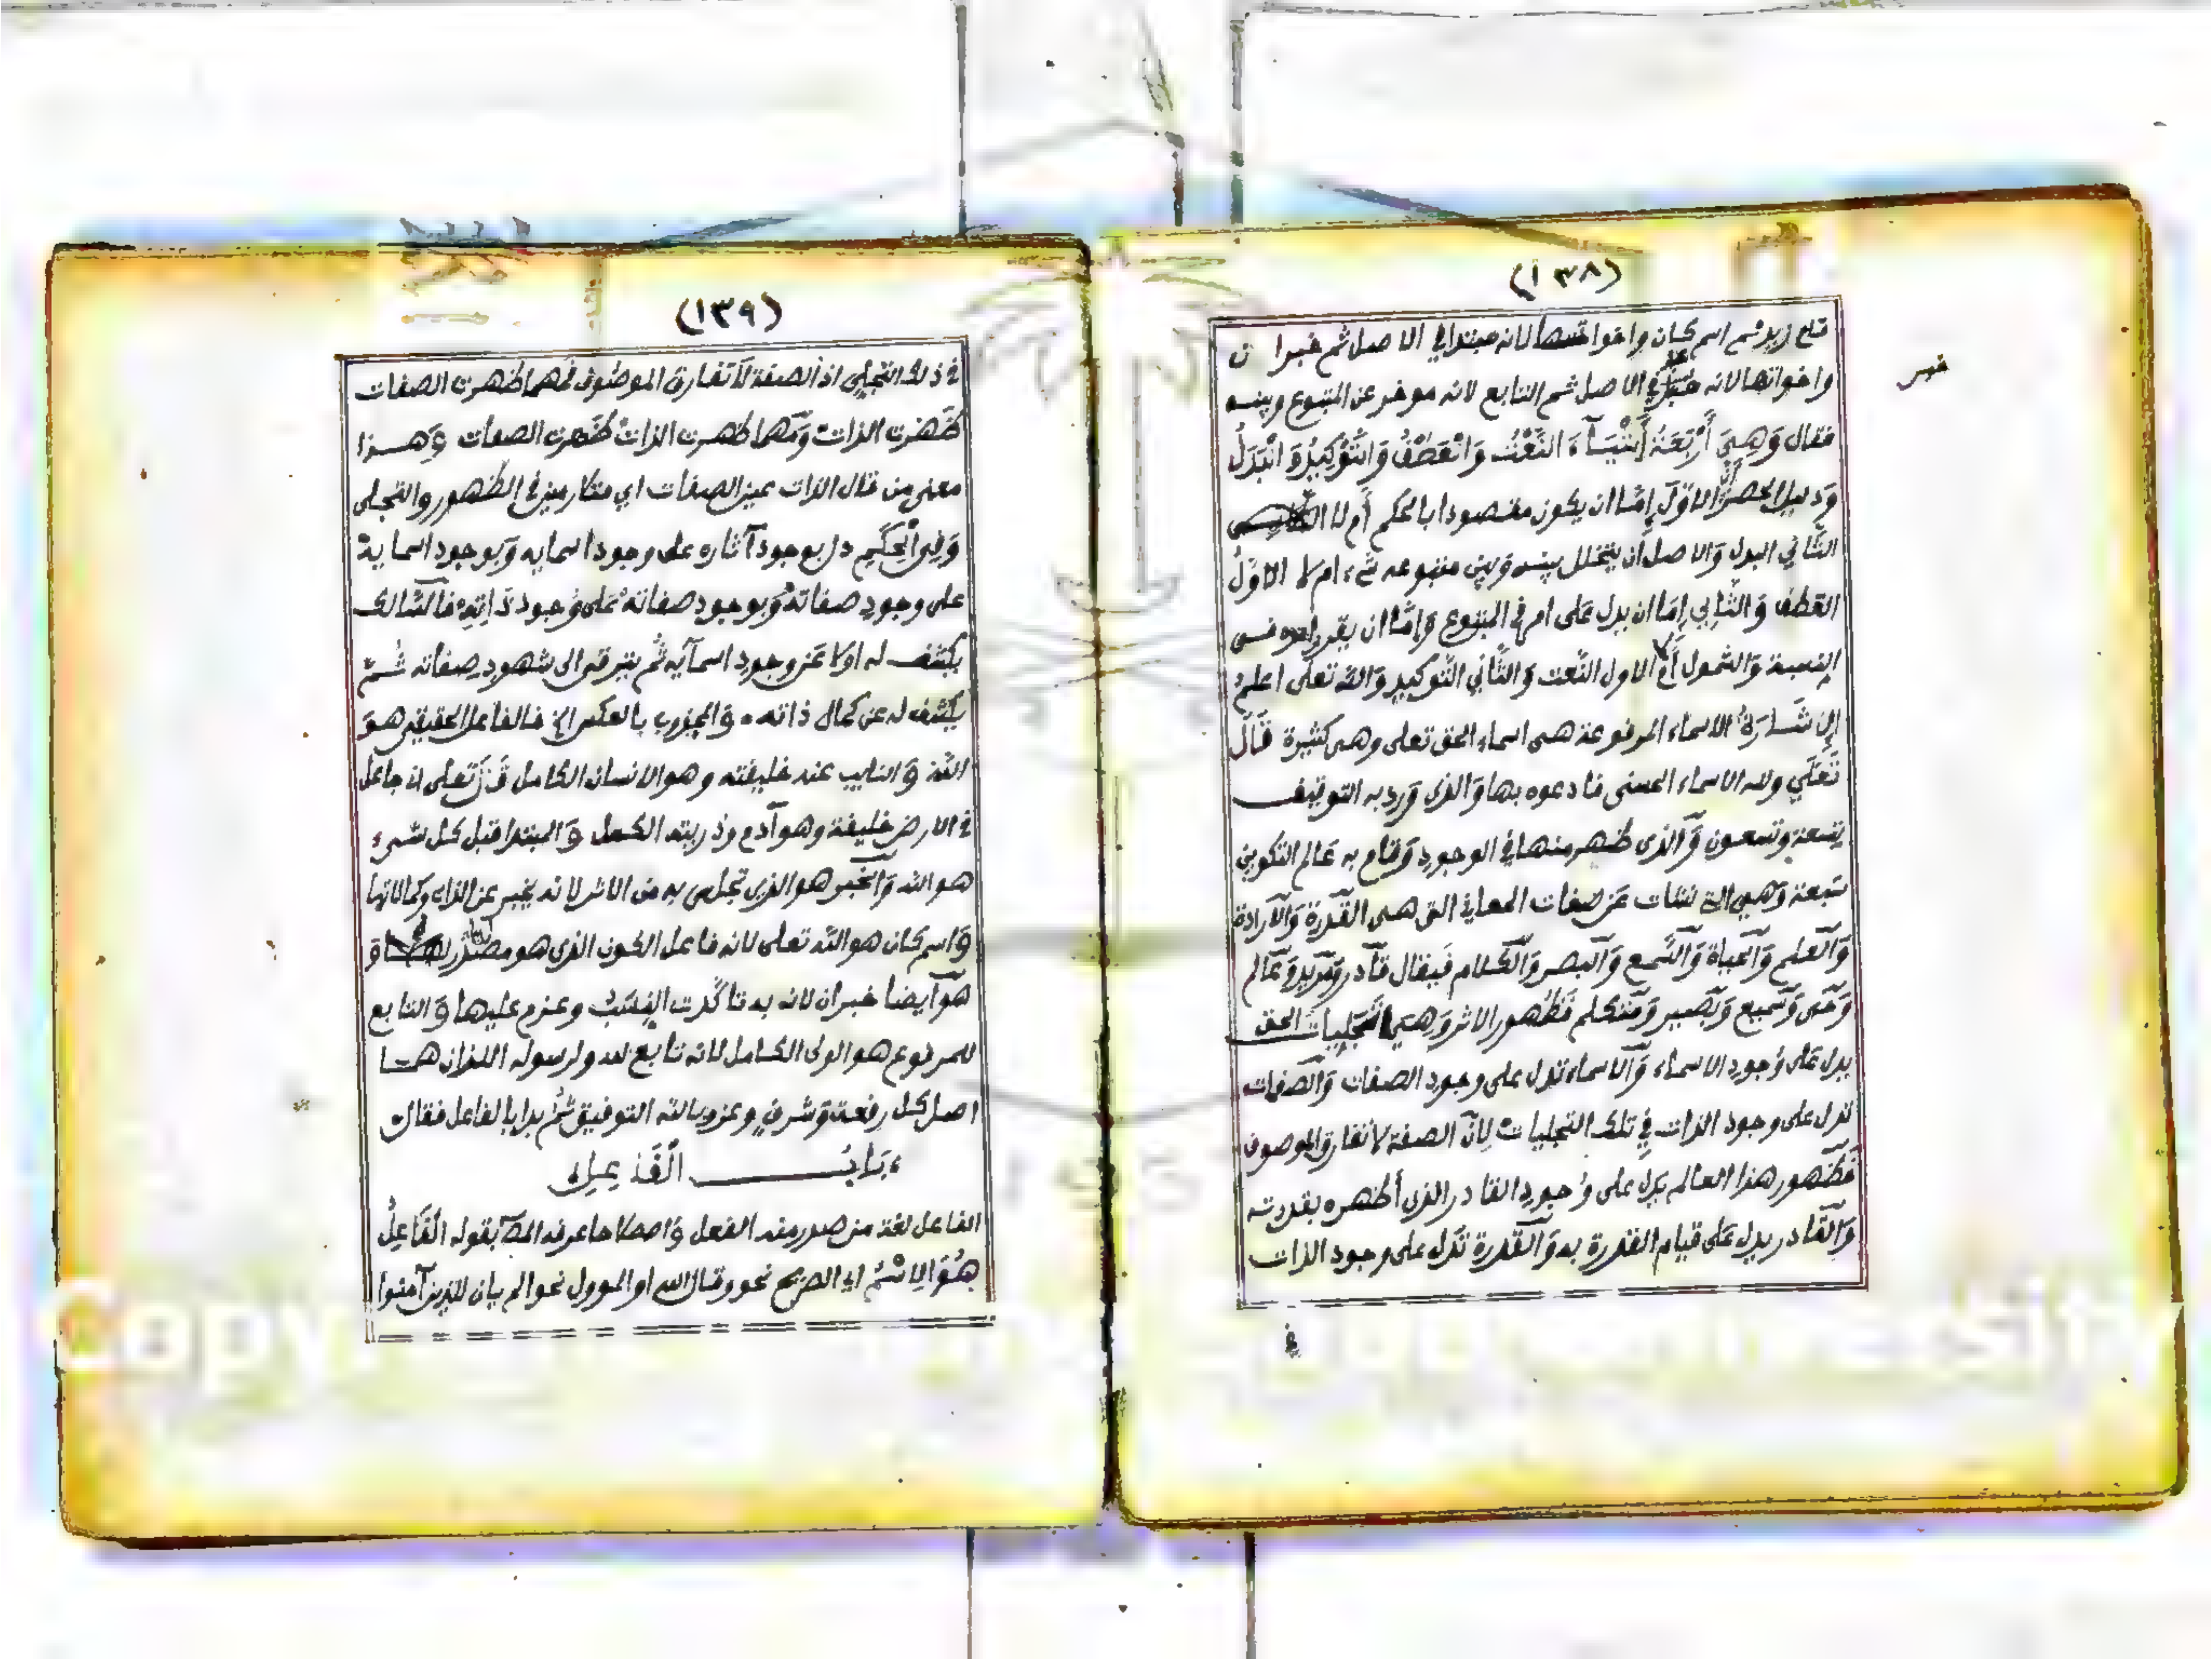 (١٣٨)
قام زيد ثم اسم كان واخواتها لانه مبتدا في الاصل ثم خبر ان
واخواتها لانه خبر في الاصل ثم التابع لانه موخر عن المتبوع وبينه
خبر
فقال وَهِيَ أَرْبَعَةُ أَشْيَآءَ النَّعْتُ وَالْعَطْفُ وَالتَّوْكِيدُ وَالْبَدَلُ
وَدليل الحصر ان الاوّل إمّا ان يكون مقصودا بالحكم أم لا
الثَّاني البدل وَالاصل ان يتخلل بينه وَبين متبوعه شيء ام لا الاوّلُ
العَطف وَالثّاني إمّا ان يدل عَلى امر في المتبوع وَإمّا ان يقرر امره في
النسبة وَالشمول أم لا الاول النّعت وَالثّاني التّوكيد وَالله تعلى اعلمُ
إلاشَارَةُ الاسماء المرفوعة هى اسماء الحق تعلى وهى كثيرة قَالَ
تَعَلَي ولله الاسماء الحسنى فادعوه بها وَالذى وَرد به التوقيف
تِسعة وتسعون وَالذى ظهر منها في الوجود وَقام به عَالم التكوين
سَبعة وَهي التى نشات عَن صفات المعاني التى هى القُدرة وَالارَادة
وَالعلم وَالحياة وَالسَّمع وَالبصر وَالكلام فَيقال قادر ومَريد وَعَالم
وَحَى وَسميع وَبَصير وَمتكلم فَظهور الاثر وَهي تَجليات الحق
يدل عَلى وُجود الاسماء وَالاسماء تدل على وجود الصفات وَالصّفات
تدل على وجود الذات فِي تلك التجليات لِانّ الصفة لا تفارق الموصوف
فَظهور هذا العالم يَدل على وُجود القادر الذى أظهره بقدرته
وَالقَادر يدل عَلى قيام القدرة به وَالقُدرة تَدل على وجود الذات
في
(١٣٩)
في ذلك التجلي اذ الصفة لا تفارق الموصوف فَمهما ظهرت الصفات
ظَهرت الذاتُ وَمَهما ظهرت الذاتُ ظَهرت الصفات وَهـذا
معنى من قال الذات عين الصفات اي متلازمين في الظهور والتجلى
وَفِي الْحِكَمِ دل بوجود آثاره على وجود اسمايه وَبوجود اسمايه
على وجود صفاته وَبوجود صفاته عَلى وُجود ذَاتِهِ فالسَّالك
يكشف له اولا عَن وجود اسمآيه ثُم يترقى الى شهود صِفاته ثُـمّ
يكشف له عن كمال ذاته. وَالمجذوب بالعكس الخ فالفاعل الحقيقي هوَ
الله وَالنايب عنه خليفته وهو الانسان الكامل قَالَ تَعلى انى جاعل
في الارض خليفة وهو آدم وذريته الكمل وَالمبتدا قبل كل شىء
هو الله وَالخبر هو الذى تجلى به من الاثر لانه يخبر عن الذات وكمالاتها
وَاسم كان هو الله تعلى لانه فاعل الكون الذى هو مصدر
هو آيضا خبر ان لانه به تاكّدت النِسَبُ وعزم عليها وَالتابع
للمرفوع هو الولى الكامل لانه تابع لله ولرسوله اللذان همـا
اصل كل رفعة وَشرفٍ وعز وبالله التوفيق ثُم بدا بالفاعل فقال
بَابُ الْفَاعِلِ
الفاعل لغة من صدر منه الفعل وَاصطلاحا عرفه المصَ بقوله الْفَاعِلُ
هُوَ الِاسْمُ اي الصريح نحو وقال الله او الموول نحو الم يان للذين آمنوا